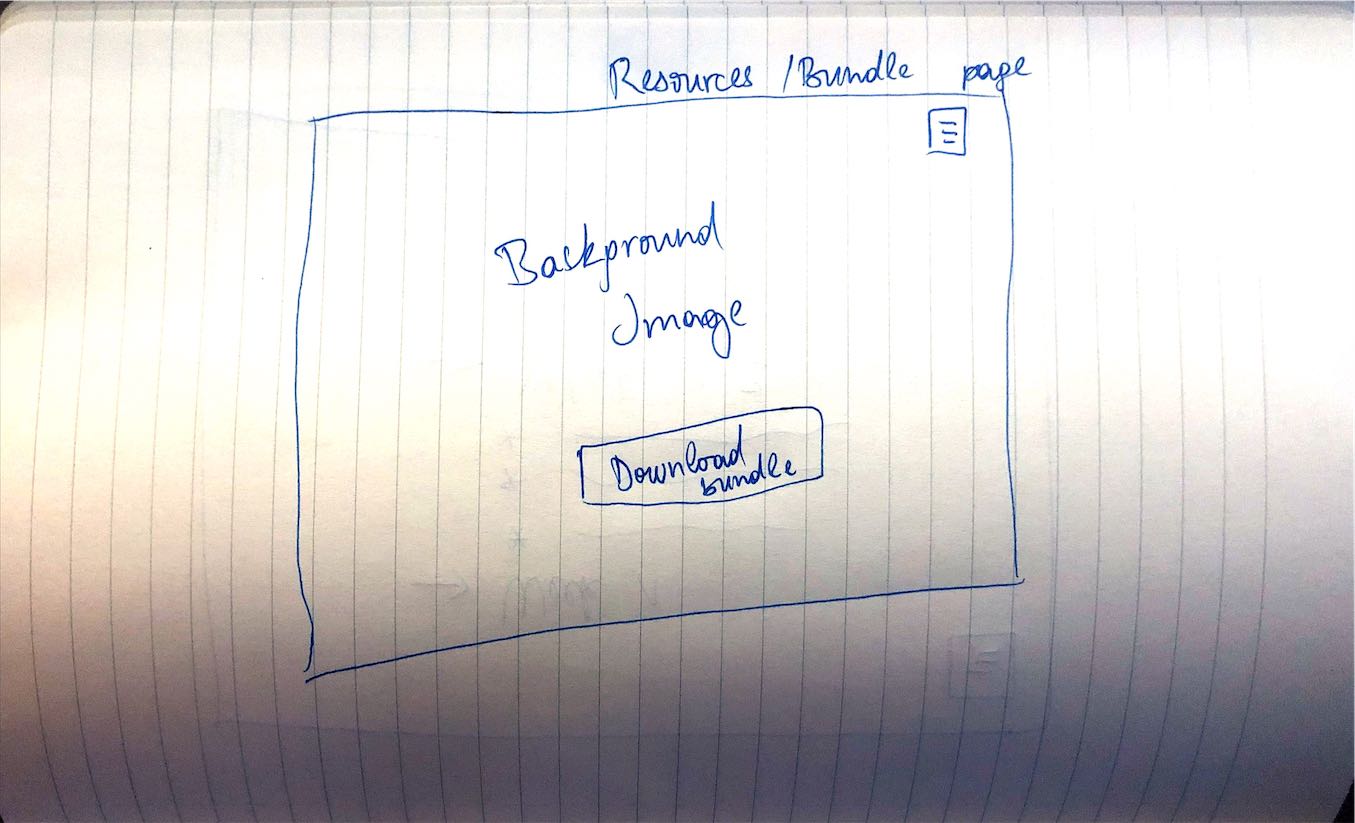 Resources / Bundle page
Background
Image
Download
bundle